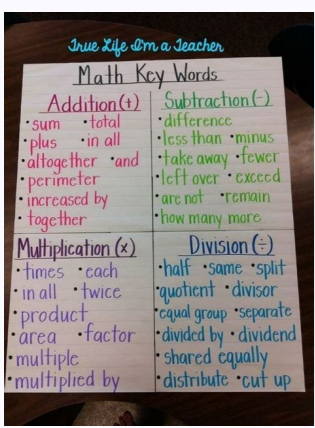 True Life I'm a Teacher
Math Key Words
Addition (+)
• sum • total
• plus • in all
• altogether • and
• perimeter
• increased by
• together
Subtraction (-)
• difference
• less than • minus
• take away • fewer
• left over • exceed
• are not • remain
• how many more
Multiplication (x)
• times • each
• in all • twice
• product
• area • factor
• multiple
• multiplied by
Division (÷)
• half • same • split
• quotient • divisor
• equal group • separate
• divided by • dividend
• shared equally
• distribute • cut up